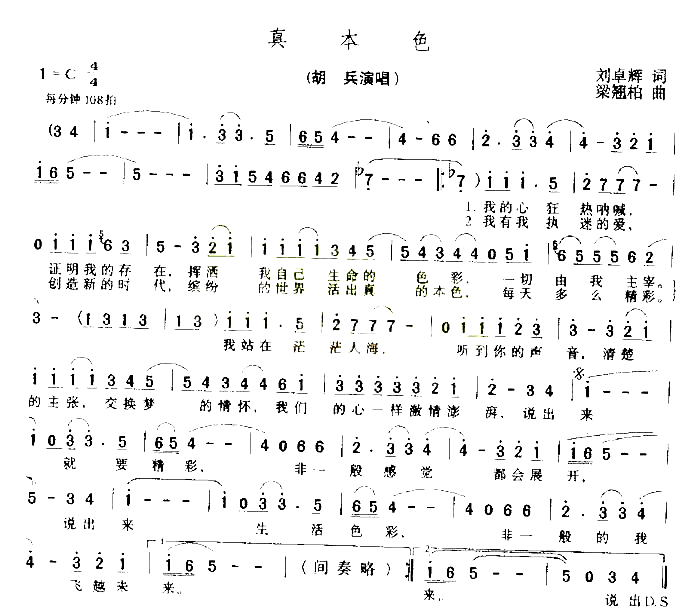 真 本 色
1 = C 4/4
(胡 兵演唱)
刘卓辉 词
每分钟 108拍
梁翘柏 曲
(3 4 | 1 - - - | 1 . 3 3 . 5 | 1 6 5 4 - - | 4 - 6 6 | 2 . 3 3 4 | 4 - 3 2 1 |
1 6 5 - - | 5 - - - | 3 1 5 4 6 6 4 2 | ♭7 - - - :| ♭7 - - ) | 1 1 1 . 5 | 2 7 7 7 - |
1. 我的心 狂 热呐喊,
2. 我有我 执 迷的爱,
0 1 1 1 6 3 | 5 - 3 2 1 | 1 1 1 1 3 4 5 | 5 4 3 4 4 0 5 1 | 6 5 5 5 6 2 |
证明我的存 在, 挥洒 我自己 生命的 色 彩, 一切 由 我 主宰。
创造新的时 代, 缤纷 的世界 活出真 的本色, 每天 多 么 精彩。
3 - ( 1 3 1 3 | 1 3 ) 1 1 1 . 5 | 2 7 7 7 - | 0 1 1 1 2 3 | 3 - 3 2 1 |
我站在 茫 茫人海, 听到你的声 音, 清楚
1 1 1 1 3 4 5 | 5 4 3 4 4 6 1 | 3 3 3 3 3 3 2 1 | 2 - 3 4 | 1 - - - |
的主张, 交换梦 的情怀, 我们 的心一样激情澎 湃, 说出 来
1 0 3 3 . 5 | 1 6 5 4 - - | 4 0 6 6 | 2 . 3 3 4 | 4 - 3 2 1 | 1 6 5 - - |
就 要 精彩, 非一 般 感觉 都会 展 开,
5 - 3 4 | 1 - - - | 1 0 3 3 . 5 | 1 6 5 4 - - | 4 0 6 6 | 2 . 3 3 4 |
说 出 来 生 活 色 彩, 非一 般 的 我
4 - 3 2 1 | 1. 1 6 5 - - | (间奏略) :| 2. 1 6 5 - - | 5 0 3 4 |
飞 越 未 来。 来。 说 出 D.S